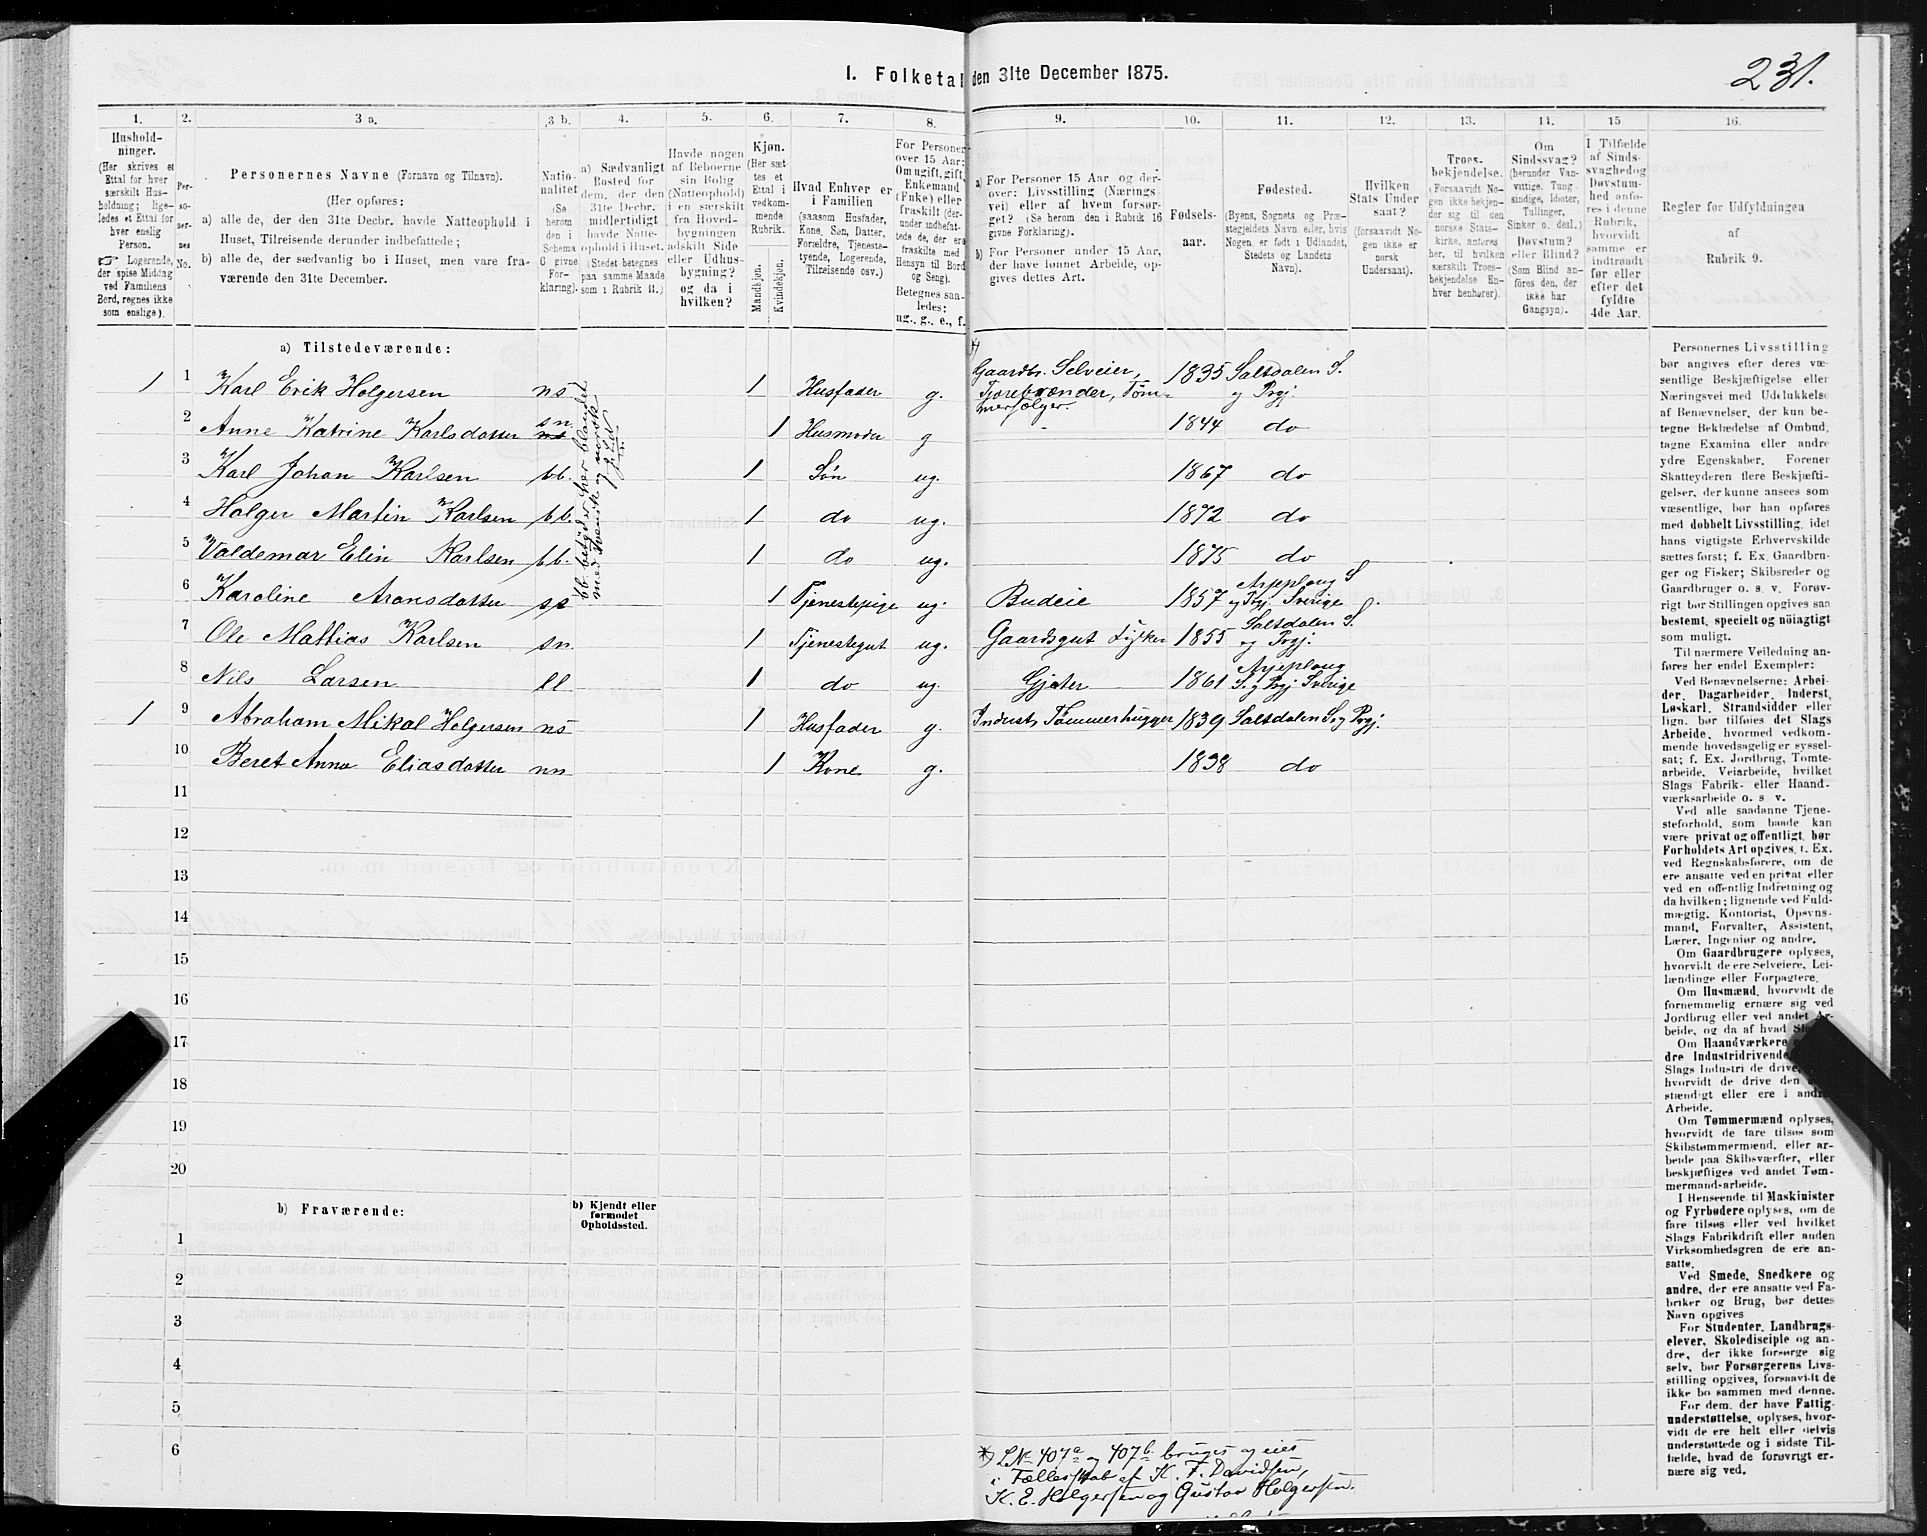 231.
1. Folketal den 31te December 1875.
1. 2. 3 a. 3 b. 4. 5. 6. 7. 8. 9. 10. 11. 12. 13. 14. 15 16.
Hushold-
ninger.
(Her skrives et
Ettal for hver
særskilt Hus-
holdning; lige-
ledes et Ettal for
hver enslig
Person.
Logerende,
der spise Middag
ved Familiens
Bord, regnes ikke
som enslige).
Per-
so-
ner-
nes
No.
Personernes Navne (Fornavn og Tilnavn).
(Her opføres:
a) alle de, der den 31te Decbr. havde Natteophold i
Huset, Tilreisende derunder indbefattede;
b) alle de, der sædvanlig bo i Huset, men vare fra-
værende den 31te December.
Natio-
nalitet
(Se
herom
den i
Schema
C givne
For-
klaring).
a) Sædvanligt
Bosted for
dem, der den
31te Decbr.
midlertidigt
havde Natte-
ophold i Huset.
(Stedet betegnes
paa samme Maade
som i Rubrik 11.)
Havde nogen
af Beboerne
sin Bolig
(Natteophold)
i en særskilt
fra Hoved-
bygningen
adskilt Side
eller Udhus-
bygning?
og da i
hvilken?
Kjøn.
(Her sæt-
tes et
Ettal i
vedkom-
mende
Rubrik.
Mandkjøn.
Kvindekjøn.
Hvad Enhver er
i Familien
(saasom Husfader,
Kone, Søn, Datter,
Forældre, Tjeneste-
tyende, Logerende,
Tilreisende osv.)
For Personer
over 15 Aar:
Om ugift, gift,
Enkemand
(Enke) eller
fraskilt (der-
under indbefat-
tede de, der ere
fraskilte med
Hensyn til Bord
og Seng).
Betegnes saa-
ledes:
ug., g., e., f.
a) For Personer 15 Aar og der-
over: Livsstilling (Nærings-
vei) eller af hvem forsør-
get? (Se herom den i Rubrik 16
givne Forklaring).
b) For Personer under 15 Aar,
der have lønnet Arbeide, op-
gives dettes Art.
Fødsels-
aar.
Fødested.
(Byens, Sognets og Præ-
stegjeldets Navn eller, hvis
Nogen er født i Udlandet,
Stedets og Landets
Navn).
Hvilken
Stats Under
saat?
(forsaavidt No-
gen ikke er
norsk
Undersaat).
Troes-
bekjendelse.
(Forsaavidt No-
gen ikke bekjen-
der sig til den
norske Stats-
kirke, anføres
her, til hvilken
særskilt Troes-
bekjendelse En-
hver henhører).
Om
Sindssvag?
(herunder Van-
vittige, Tung-
sindige, Idioter,
Tullinger,
Sinker o. desl.)
Døvstum?
eller Blind?
(Som Blind an-
føres den, der
ikke har
Gangsyn).
I Tilfælde
af Sinds-
svaghed og
Døvstum-
hed anfø-
res i denne
Rubrik,
hvorvidt
samme er
indtraadt
før eller
efter det
fyldte
4de Aar.
Regler for Udfyldningen
af
Rubrik 9.
a) Tilstedeværende:
1 1 Karl Erik Holgersen ns 1 Husfader g. *) Gaardbr. Selveier, Tjærebrænder, Tøm-mersælger. 1835 Saltdalen S. og Pgj.
2 Anne Katrine Karlsdatter sn ns 1 Husmoder g - 1844 do
3 Karl Johan Karlsen bb. 1 Søn ug. 1867 do
4 Holger Martin Karlsen bb. 1 do ug. 1872 do
5 Valdemar Elin Karlsen bb. 1 do ug. 1875 do
6 Karoline Aronsdatter ss 1 Tjenestepige ug. Budeie 1857 Arjeploug S og Pgj. Sverige
7 Ole Mattias Karlsen sn 1 Tjenestegut ug. Gaardsgut Fisker 1855 Saltdalen S. og Pgj.
8 Nils Larsen ll 1 do ug. Gjæter 1861 Arjeploug S. og Pgj Sverige
1 9 Abraham Mikal Holgersen ns 1 Husfader g. Inderst, Tømmerhugger 1839 Saltdalen S og Pgj.
10 Beret Anna Eliasdatter nn 1 Kone g. 1838 do
bb. betyder her blandet
med svensk og norsk
11
12
13
14
15
16
17
18
19
20
b) Fraværende:
b) Kjendt eller
formodet
Opholdssted.
1
2
3
4
5
6
*) LNr 407a og 407b. bruges og eies
i Fællesskab af K. F. Davidsen,
K. E. Holgersen og Gustav Holgersen.
Personernes Livsstilling
bør angives efter deres væ-
sentlige Beskjæftigelse eller
Næringsvei med Udelukkelse
af Benævnelser, der kun be-
tegne Beklædelse af Ombud,
tagne Examina eller andre
ydre Egenskaber. Forener
Skatteyderen flere Beskjæfti-
gelser, der kunne ansees som
væsentlige, bør han opføres
med dobbelt Livsstilling, idet
hans vigtigste Erhvervskilde
sættes først; f. Ex. Gaardbru-
ger og Fisker; Skibsreder og
Gaardbruger o. s. v. Forøv-
rigt bør Stillingen opgives saa
bestemt, specielt og nøiagtigt
som muligt.
Til nærmere Veiledning an-
føres her endel Exempler:
Ved Benævnelserne: Arbei-
der, Dagarbeider, Inderst,
Løskarl, Strandsidder eller
lign. bør tilføies det Slags
Arbeide, hvormed vedkom-
mende hovedsagelig er syssel-
sat; f. Ex. Jordbrug, Tomte-
arbeide, Veiarbeide, hvilket
Slags Fabrik- eller Haand-
værksarbeide o. s v.
Ved alle saadanne Tjene-
steforhold, som baade kan
være privat og offentligt, bør
Forholdets Art opgives, t. Ex.
ved Regnskabsførere, om de
ere ansatte ved en privat eller
ved en offentlig Indretning og
da hvilken; lignende ved Fuld-
mægtig, Kontorist, Opsyns-
mand, Forvalter, Assistent,
Lærer, Ingeniør og andre.
Om Gaardbrugere oplyses,
hvorvidt de ere Selveiere, Lei-
lændinge eller Forpagtere.
Om Husmænd, hvorvidt de
fornemmelig ernære sig ved
Jordbrug eller ved andet Ar-
beide, og da af hvad
Om Haandværkere
dre Industridrivende
Slags Industri de drive,
hvorvidt de drive den
stændigt eller ere i andres
Arbeide.
Om Tømmermænd oplyses,
hvorvidt de fare tilsøs som
Skibstømmermænd, eller ar-
beide paa Skibsværfter, eller
beskjæftiges ved andet Tøm-
mermandsarbeide.
I Henseende til Maskinister
og Fyrbødere oplyses, om de
fare tilsøs eller ved hvilket
Slags Fabrikdrift eller anden
Virksomhedsgren de ere an-
satte.
Ved Smede, Snedkere og
andre, der ere ansatte ved Fa-
briker og Brug, bør dettes
Navn opgives
For Studenter, Landbrugs-
elever, Skoledisciple og an-
dre, der ikke forsørge sig
selv, bør Forsørgerens Livs-
stilling opgives, forsaavidt de
ikke bo sammen med denne.
For dem, der have Fattig-
understøttelse, oplyses, hvor-
vidt de ere helt eller delvis
understøttede og i sidste Til-
fælde, hvad de forøvrigt er-
nære sig ved.